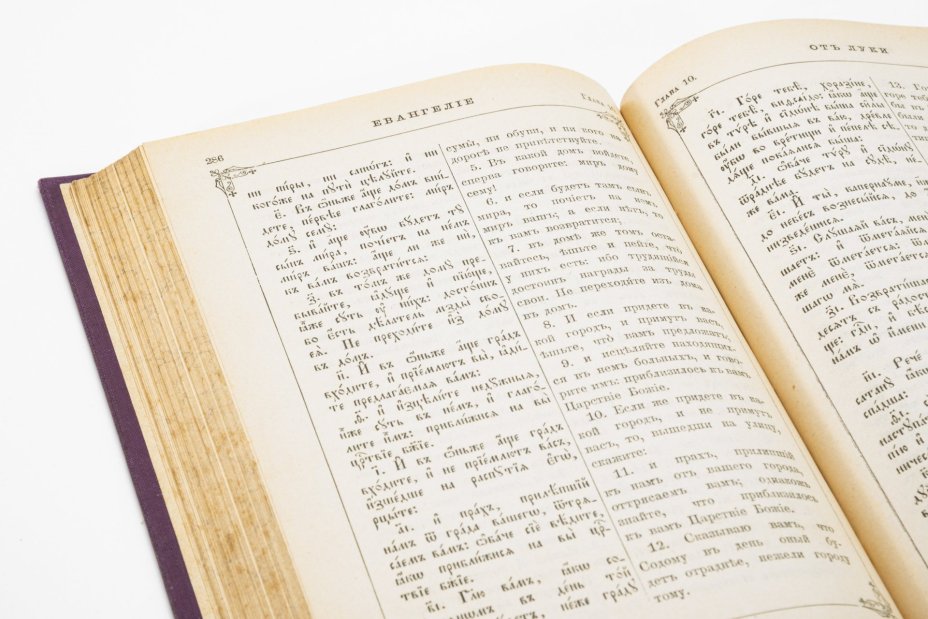 286
ЕВАНГЕЛІЕ
ни пи́ры, ни сапѡ́гъ: и҆ ни
кого́же на пꙋтѝ цѣлꙋ́йте.
є҃. Въ ѻ҆́ньже а҆́ще до́мъ вни́-
дете, пе́рвѣе глаго́лите: ми́ръ
до́мꙋ семꙋ̀:
ѕ҃. и҆ а҆́ще ᲂу҆́бѡ бꙋ́детъ тꙋ̀
сы́нъ ми́ра, почі́етъ на не́мъ
ми́ръ ва́шъ: а҆́ще ли же нѝ,
къ ва́мъ возврати́тсѧ:
з҃. въ то́мъ же домꙋ̀ пре-
быва́йте, ꙗ҆дꙋ́ще и҆ пїю́ще,
ꙗ҆̀же сꙋ́ть ᲂу҆ ни́хъ: досто́инъ
бо є҆́сть дѣ́латель мзды̀ сво-
еѧ̀. Не преходи́те и҆з̾ до́мꙋ
въ до́мъ.
и҃. И҆ въ ѻ҆́ньже а҆́ще гра́дъ
вхо́дите, и҆ прїе́млютъ вы̀, ꙗ҆ди́-
те предлага́емаѧ ва́мъ:
ѳ҃. и҆ и҆сцѣли́те недꙋ́жныѧ,
и҆̀же сꙋ́ть въ не́мъ, и҆ глаго́-
лите и҆̀мъ: прибли́жисѧ на вы̀
црⷭ҇твїе бж҃їе.
і҃. И҆ въ ѻ҆́ньже а҆́ще гра́дъ
вхо́дите, и҆ не прїе́млютъ ва́съ,
и҆зше́дше на распꙋ̑тїѧ є҆гѡ̀,
рцы́те:
а҃і. и҆ пра́хъ, прилѣ́пшїй
на́мъ ѿ гра́да ва́шегѡ, ѿтрѧ-
са́емъ ва́мъ: ѻ҆ба́че сїѐ вѣ́дите,
ꙗ҆́кѡ прибли́жисѧ на вы̀ црⷭ҇-
твїе бж҃їе.
в҃і. Гл҃ю ва́мъ, ꙗ҆́кѡ со-
въ де́нь то́й
не́же гра́дꙋ
сумы, ни обуви, и ни кого на
дорогѣ не привѣтствуйте.
5. Въ какой домъ войдете,
сперва говорите: миръ дому
сему!
6. и если будетъ тамъ сынъ
мира, то почіетъ на немъ
миръ вашъ; а если нѣтъ, то
къ вамъ возвратится;
7. въ домѣ же томъ оста-
вайтесь, ѣшьте и пейте, что
у нихъ есть: ибо трудящійся
достоинъ награды за труды
свои. Не переходите изъ дома
въ домъ.
8. И если придете въ ка-
кой городъ, и примутъ васъ,
ѣшьте, что́ вамъ предложатъ;
9. и исцѣляйте находящих-
ся въ немъ больныхъ, и гово-
рите имъ: приблизилось къ вамъ
Царствіе Божіе.
10. Если же придете въ ка-
кой городъ, и не примутъ
васъ, то, вышедши на улицу,
скажите:
11. и прахъ, прилипшій
къ намъ отъ вашего города,
оттрясаемъ вамъ; однакожъ
знайте, что приблизилось
къ вамъ Царствіе Божіе.
12. Сказываю вамъ, что
Содому въ день оный бу-
детъ отраднѣе, нежели городу
тому.
Глава 10.
ОТЪ ЛУКИ
г҃і. Го́ре тебѣ̀, хорази́не,
го́ре тебѣ̀, виѳсаі́до: ꙗ҆́кѡ а҆́ще
въ тѵ́рѣ и҆ сїдѡ́нѣ бы́ша си̑лы
бы́ли бы́вшыѧ въ ва́ю, дре́вле
ᲂу҆́бѡ во вре́тищи и҆ пе́пелѣ сѣ-
да́ще пока́ѧлисѧ бы́ша:
д҃і. ѻ҆ба́че тѵ́рꙋ и҆ сїдѡ́нꙋ
ѿра́днѣе бꙋ́детъ на сꙋдѣ̀, не́-
же ва́ма.
є҃і. И҆ ты̀, капернаꙋ́ме, и҆́же
до небе́съ вознесы́йсѧ, до
низведе́шисѧ.
ѕ҃і. Слꙋ́шаѧй ва́съ, менѐ
шаетъ: и҆ ѿмета́ѧйсѧ
менѐ ѿмета́етсѧ:
же менѐ, ѿмета́етсѧ
шагѡ мѧ̀.
з҃і. Возврати́ша
де́сѧтъ съ ра́дость
ще: гдⷭ҇и, и҆ бѣ́си
на́мъ ѡ҆ и҆́мени
и҃і. Рече́
сатанꙋ̀ ꙗ҆́кѡ
спа́дша:
13. Го
горе те
бы въ